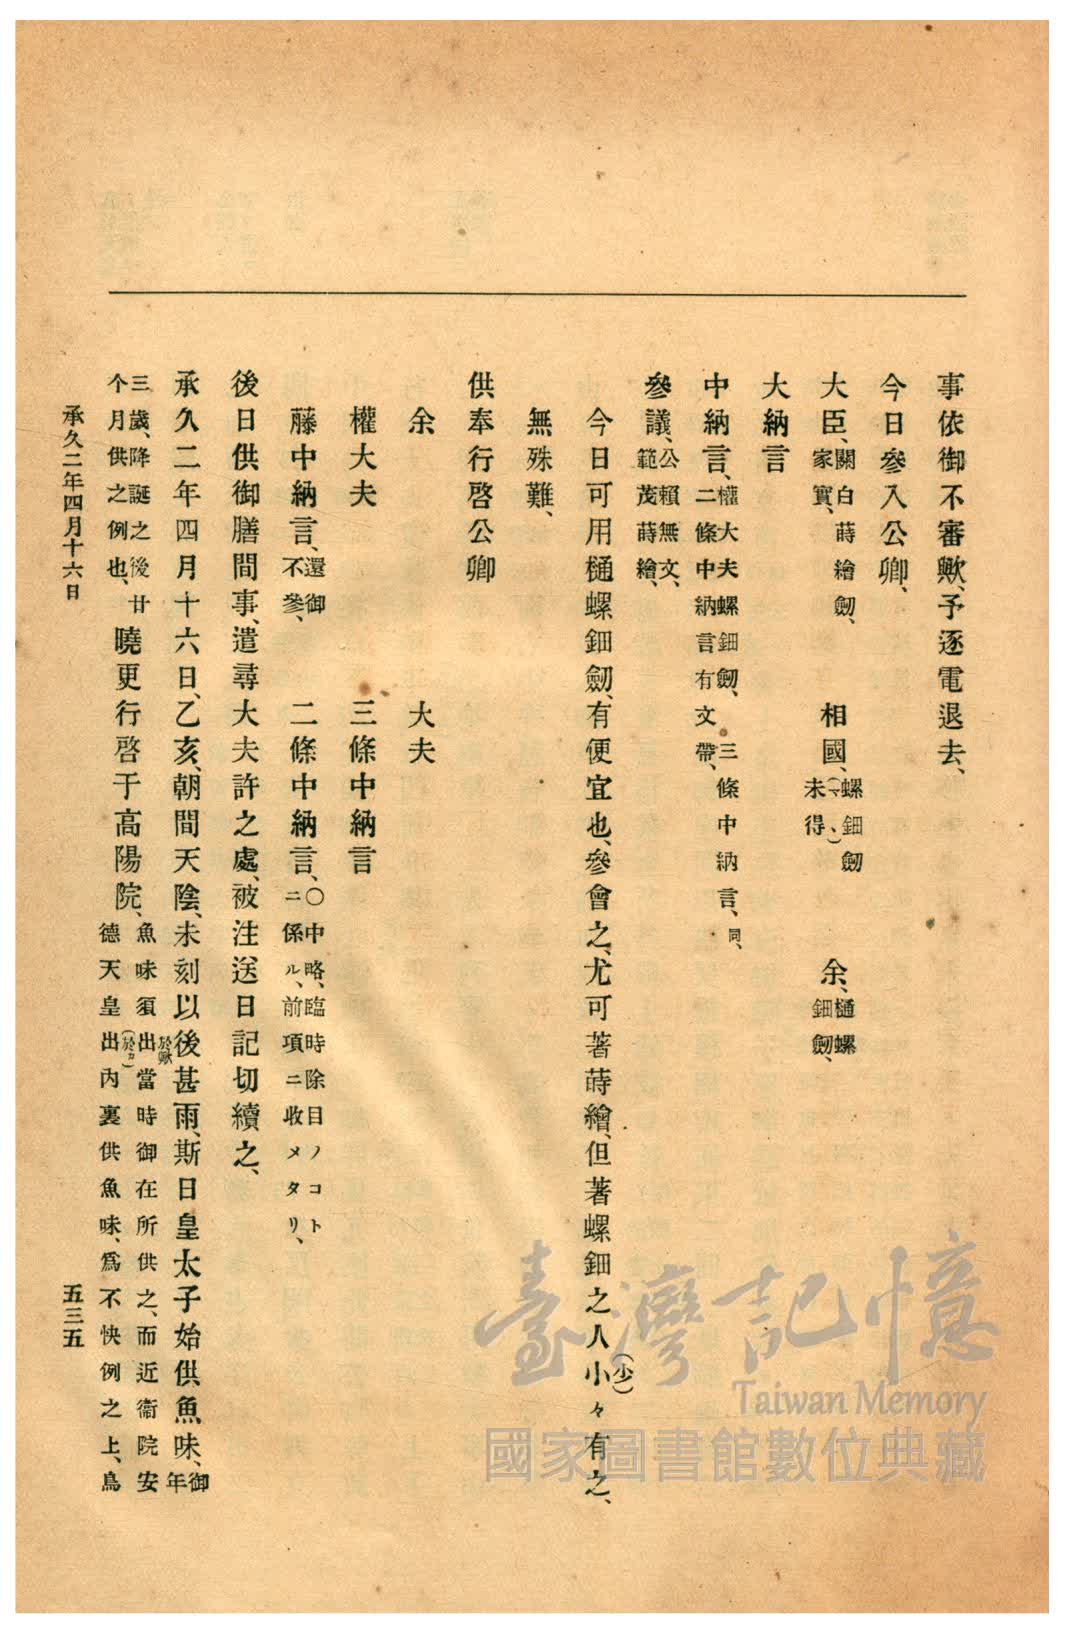 事依御不審歟、予逐電退去、
今日參入公卿、
大臣、關白蒔繪劒、家實、 相國、螺鈿劒(マヽ)未得、 余、樋螺鈿劒、
大納言
中納言、權大夫螺鈿劒、二條中納言有文帶、三條中納言、同、
參議、公賴無文、範茂蒔繪、
今日可用樋螺鈿劒、有便宜也、參會之、尤可著蒔繪、但著螺鈿之人小(少)々有之、
無殊難、
供奉行啓公卿
余 大夫
權大夫 三條中納言
藤中納言、還御不參、 二條中納言、〇中略、臨時除目ノコトニ係ル、前項ニ收メタリ、
後日供御膳間事、遣尋大夫許之處、被注送日記切續之、
承久二年四月十六日、乙亥、朝間天陰、未刻以後甚雨、斯日皇太子始供魚味、御年
三歲、降誕之後廿个月供之例也、曉更行啓于高陽院、魚味須出(於歟)當時御在所供之、而近衞院安德天皇出(於カ)內裏供魚味、爲不快例之上、鳥
承久二年四月十六日
五三五
臺灣記憶
Taiwan Memory
國家圖書館數位典藏